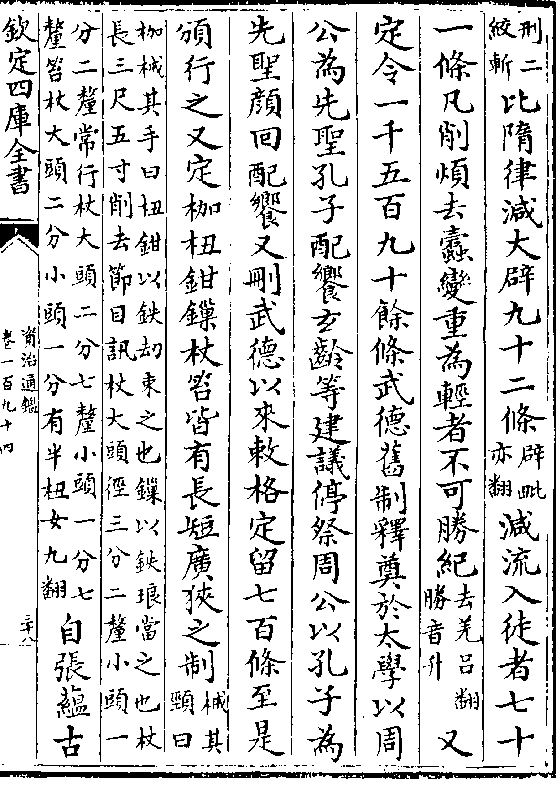 刑二
絞斬
比隋律減大辟九十二條
辟毗
亦翻
減流入徒者七十
一條凡削煩去蠧變重為輕者不可勝紀
去羌呂翻
勝音升
又
定令一千五百九十餘條武德舊制釋奠於太學以周
公為先聖孔子配饗玄齡等建議停祭周公以孔子為
先聖顏回配饗又刪武德以來敕格定留七百條至是
頒行之又定枷杻鉗鏁杖笞皆有長短廣狹之制
械其
頸曰
枷械其手曰杻鉗以鉄刧束之也鏁以鉄琅當之也杖
長三尺五寸削去節目訊杖大頭徑三分二釐小頭一
分二釐常行杖大頭二分七釐小頭一分七
釐笞杖大頭二分小頭一分有半杻女九翻
自張蘊古
欽定四庫全書
資治通鑑
卷一百九十四
三十八